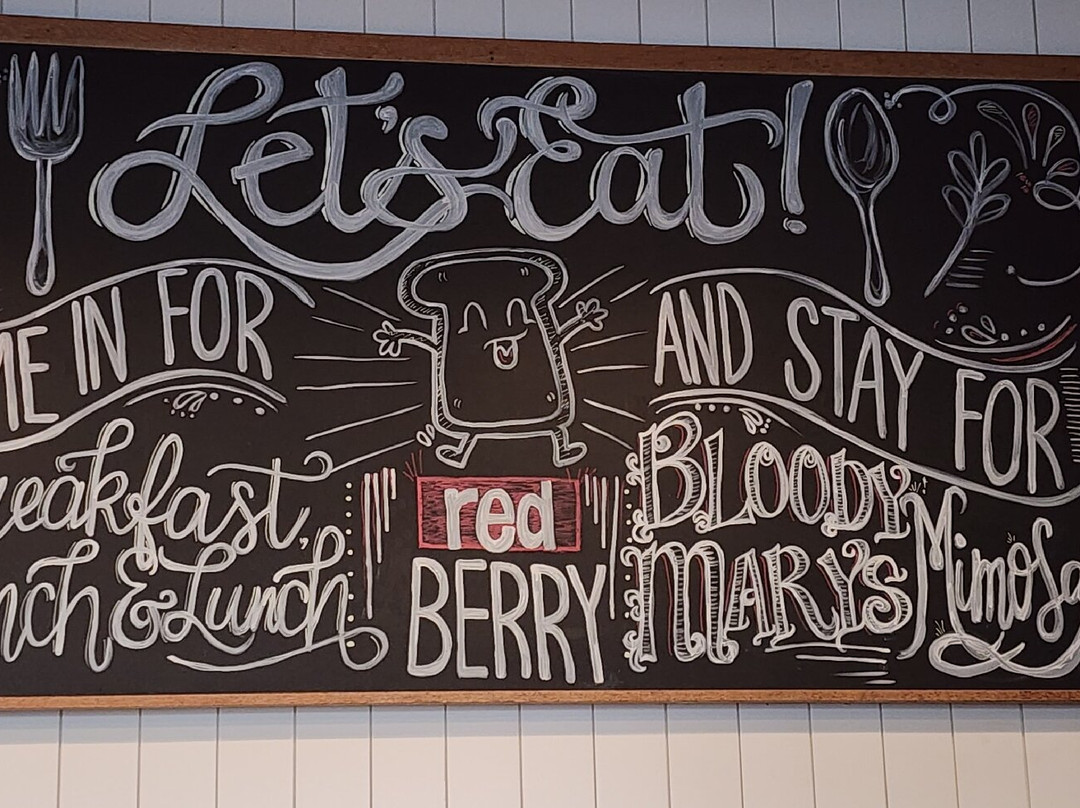 Let's Eat!
ME IN FOR
reakfast,
nch & Lunch
red
BERRY
AND STAY FOR
BLOODY
MARY'S
Mimosa